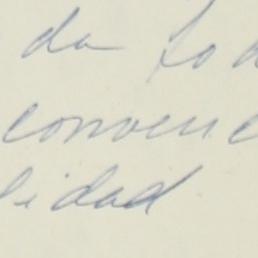 da to
convenc
lidad